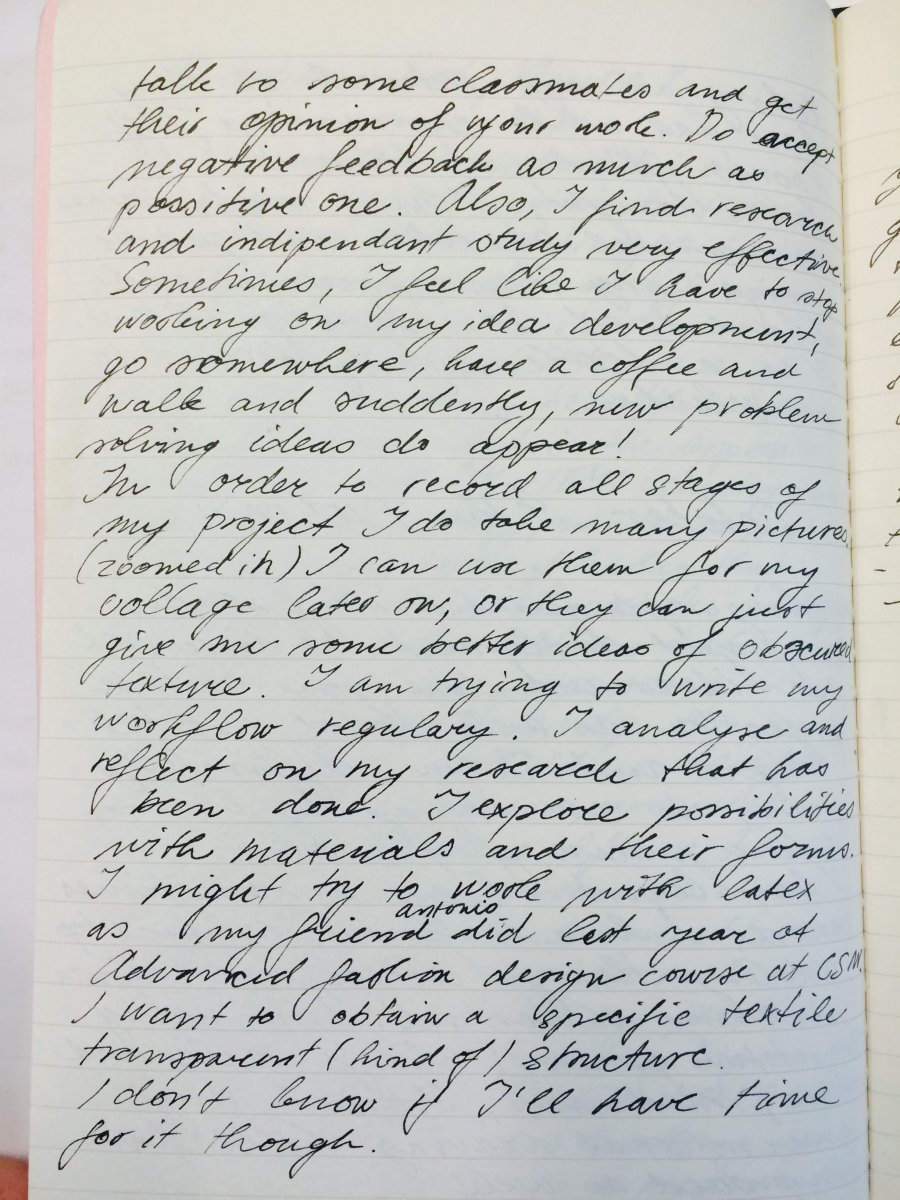 talk to some classmates and get
their opinion of your work. Do accept
negative feedback as much as
possitive one. Also, I find research
and indipendant study very effective.
Sometimes, I feel like I have to stop
working on my idea development,
go somewhere, have a coffee and
walk and suddently, new problem
solving ideas do appear!
In order to record all stages of
my project I do take many pictures.
(zoomed in) I can use them for my
collage later on, or they can just
give me some better ideas of obscured
texture. I am trying to write my
workflow regulary. I analyse and
reflect on my research that has
been done. I explore possibilities
with materials and their forms.
I might try to work with latex
as my friend antonio did last year at
Advanced fashion design course at CSM.
I want to obtain a specific textile
transparent (kind of) structure.
I don't know if I'll have time
for it though.